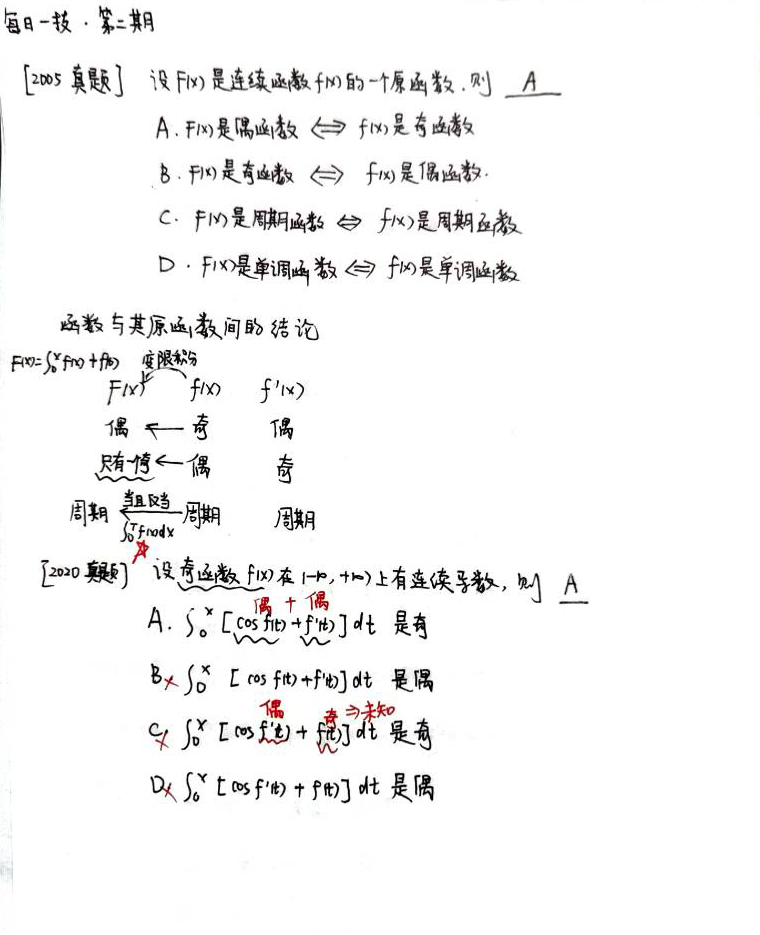 每日一技·第二期
[2005 真题] 设F(x)是连续函数f(x)的一个原函数.则 A
A. F(x)是偶函数 ⟺ f(x)是奇函数
B. F(x)是奇函数 ⟺ f(x)是偶函数.
C. F(x)是周期函数 ⟺ f(x)是周期函数
D. F(x)是单调函数 ⟺ f(x)是单调函数
函数与其原函数间的结论
变限积分
F(x) f(x) f'(x)
偶 ← 奇 偶
只有一个奇 ← 偶 奇
周期 当且仅当 周期 周期
∫₀ᵀf(x)dx
[2020 真题] 设奇函数f(x)在(-∞,+∞)上有连续导数,则 A
偶 + 偶
A. ∫₀ˣ [cos f(t) + f'(t)] dt 是奇
B× ∫₀ˣ [cos f(t) + f'(t)] dt 是偶
偶 奇 ⇒未知
C× ∫₀ˣ [cos f'(t) + f(t)] dt 是奇
D× ∫₀ˣ [cos f'(t) + f(t)] dt 是偶